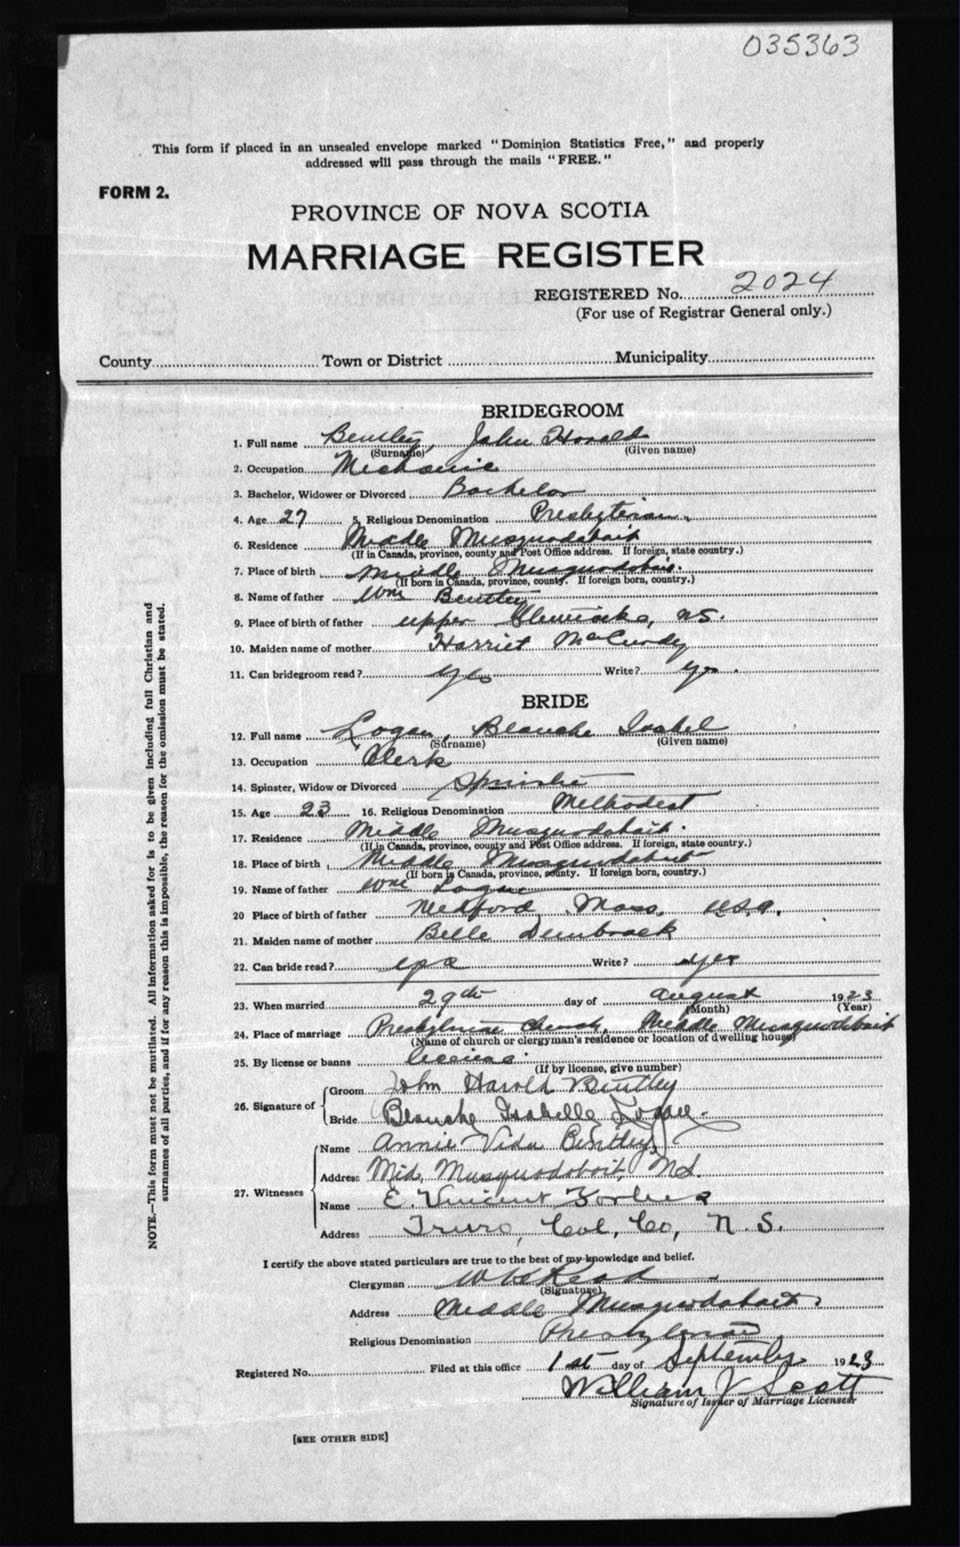 035363
This form if placed in an unsealed envelope marked "Dominion Statistics Free," and properly
addressed will pass through the mails "FREE."
FORM 2.
PROVINCE OF NOVA SCOTIA
MARRIAGE REGISTER
REGISTERED No. 2024
(For use of Registrar General only.)
County Town or District Municipality
BRIDEGROOM
1. Full name Bentley, John Harold
(Surname) (Given name)
2. Occupation Mechanic
3. Bachelor, Widower or Divorced Bachelor
4. Age 27 5. Religious Denomination Presbyterian
6. Residence Middle Musquodoboit
(If in Canada, province, county and Post Office address. If foreign, state country.)
7. Place of birth Middle Musquodoboit.
(If born in Canada, province, county. If foreign born, country.)
8. Name of father Wm Bentley
9. Place of birth of father Upper N.S.
10. Maiden name of mother Harriet McCurdy
11. Can bridegroom read? Yes Write? Yes
BRIDE
12. Full name Logan, Blanche Isabel
(Surname) (Given name)
13. Occupation Clerk
14. Spinster, Widow or Divorced Spinster
15. Age 23 16. Religious Denomination Methodist
17. Residence Middle Musquodoboit.
(If in Canada, province, county and Post Office address. If foreign, state country.)
18. Place of birth Middle Musquodoboit
(If born in Canada, province, county. If foreign born, country.)
19. Name of father Wm Logan
20 Place of birth of father Medford Mass. U.S.A.
21. Maiden name of mother Belle
22. Can bride read? yes Write? yes
23. When married 29th day of August 1923
(Month) (Year)
24. Place of marriage Presbyterian Church, Middle Musquodoboit
(Name of church or clergyman's residence or location of dwelling house)
25. By license or banns license.
(If by license, give number)
26. Signature of Groom John Harold Bentley
Bride Blanche Isabelle Logan.
27. Witnesses Name Annie Vida Bentley
Address Mid. Musquodoboit, N.S.
Name E. Vincent Forbes
Address Truro, Col. Co, N. S.
I certify the above stated particulars are true to the best of my knowledge and belief.
Clergyman Read
(Signature)
Address Middle Musquodoboit
Religious Denomination Presbyterian
Registered No. Filed at this office 1st day of September 1923
William J Scott
Signature of Issuer of Marriage Licenses
[SEE OTHER SIDE]
NOTE.—This form must not be mutilated. All information asked for is to be given including full Christian and
surnames of all parties, and if for any reason this is impossible, the reason for the omission must be stated.